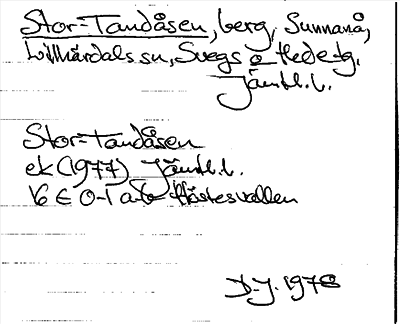 Stor-Tandåsen, berg, Sunnanå,
Lillhärdals sn, Svegs o Hede tg.
Jämtl. l.
Stor-Tandåsen
ek (1977) Jämtl. l.
16 E 0-1 a-b Hästesvallen
D-J. 1978